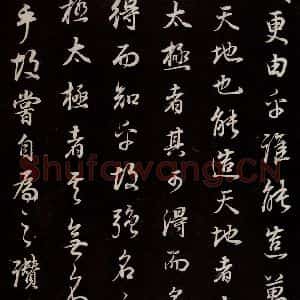 更由乎誰能造萬
天地也能造天地者
太極者其可得而名
得而知乎故强名之
極太極者其無名
乎故嘗自為之讚
Shufawang.CN